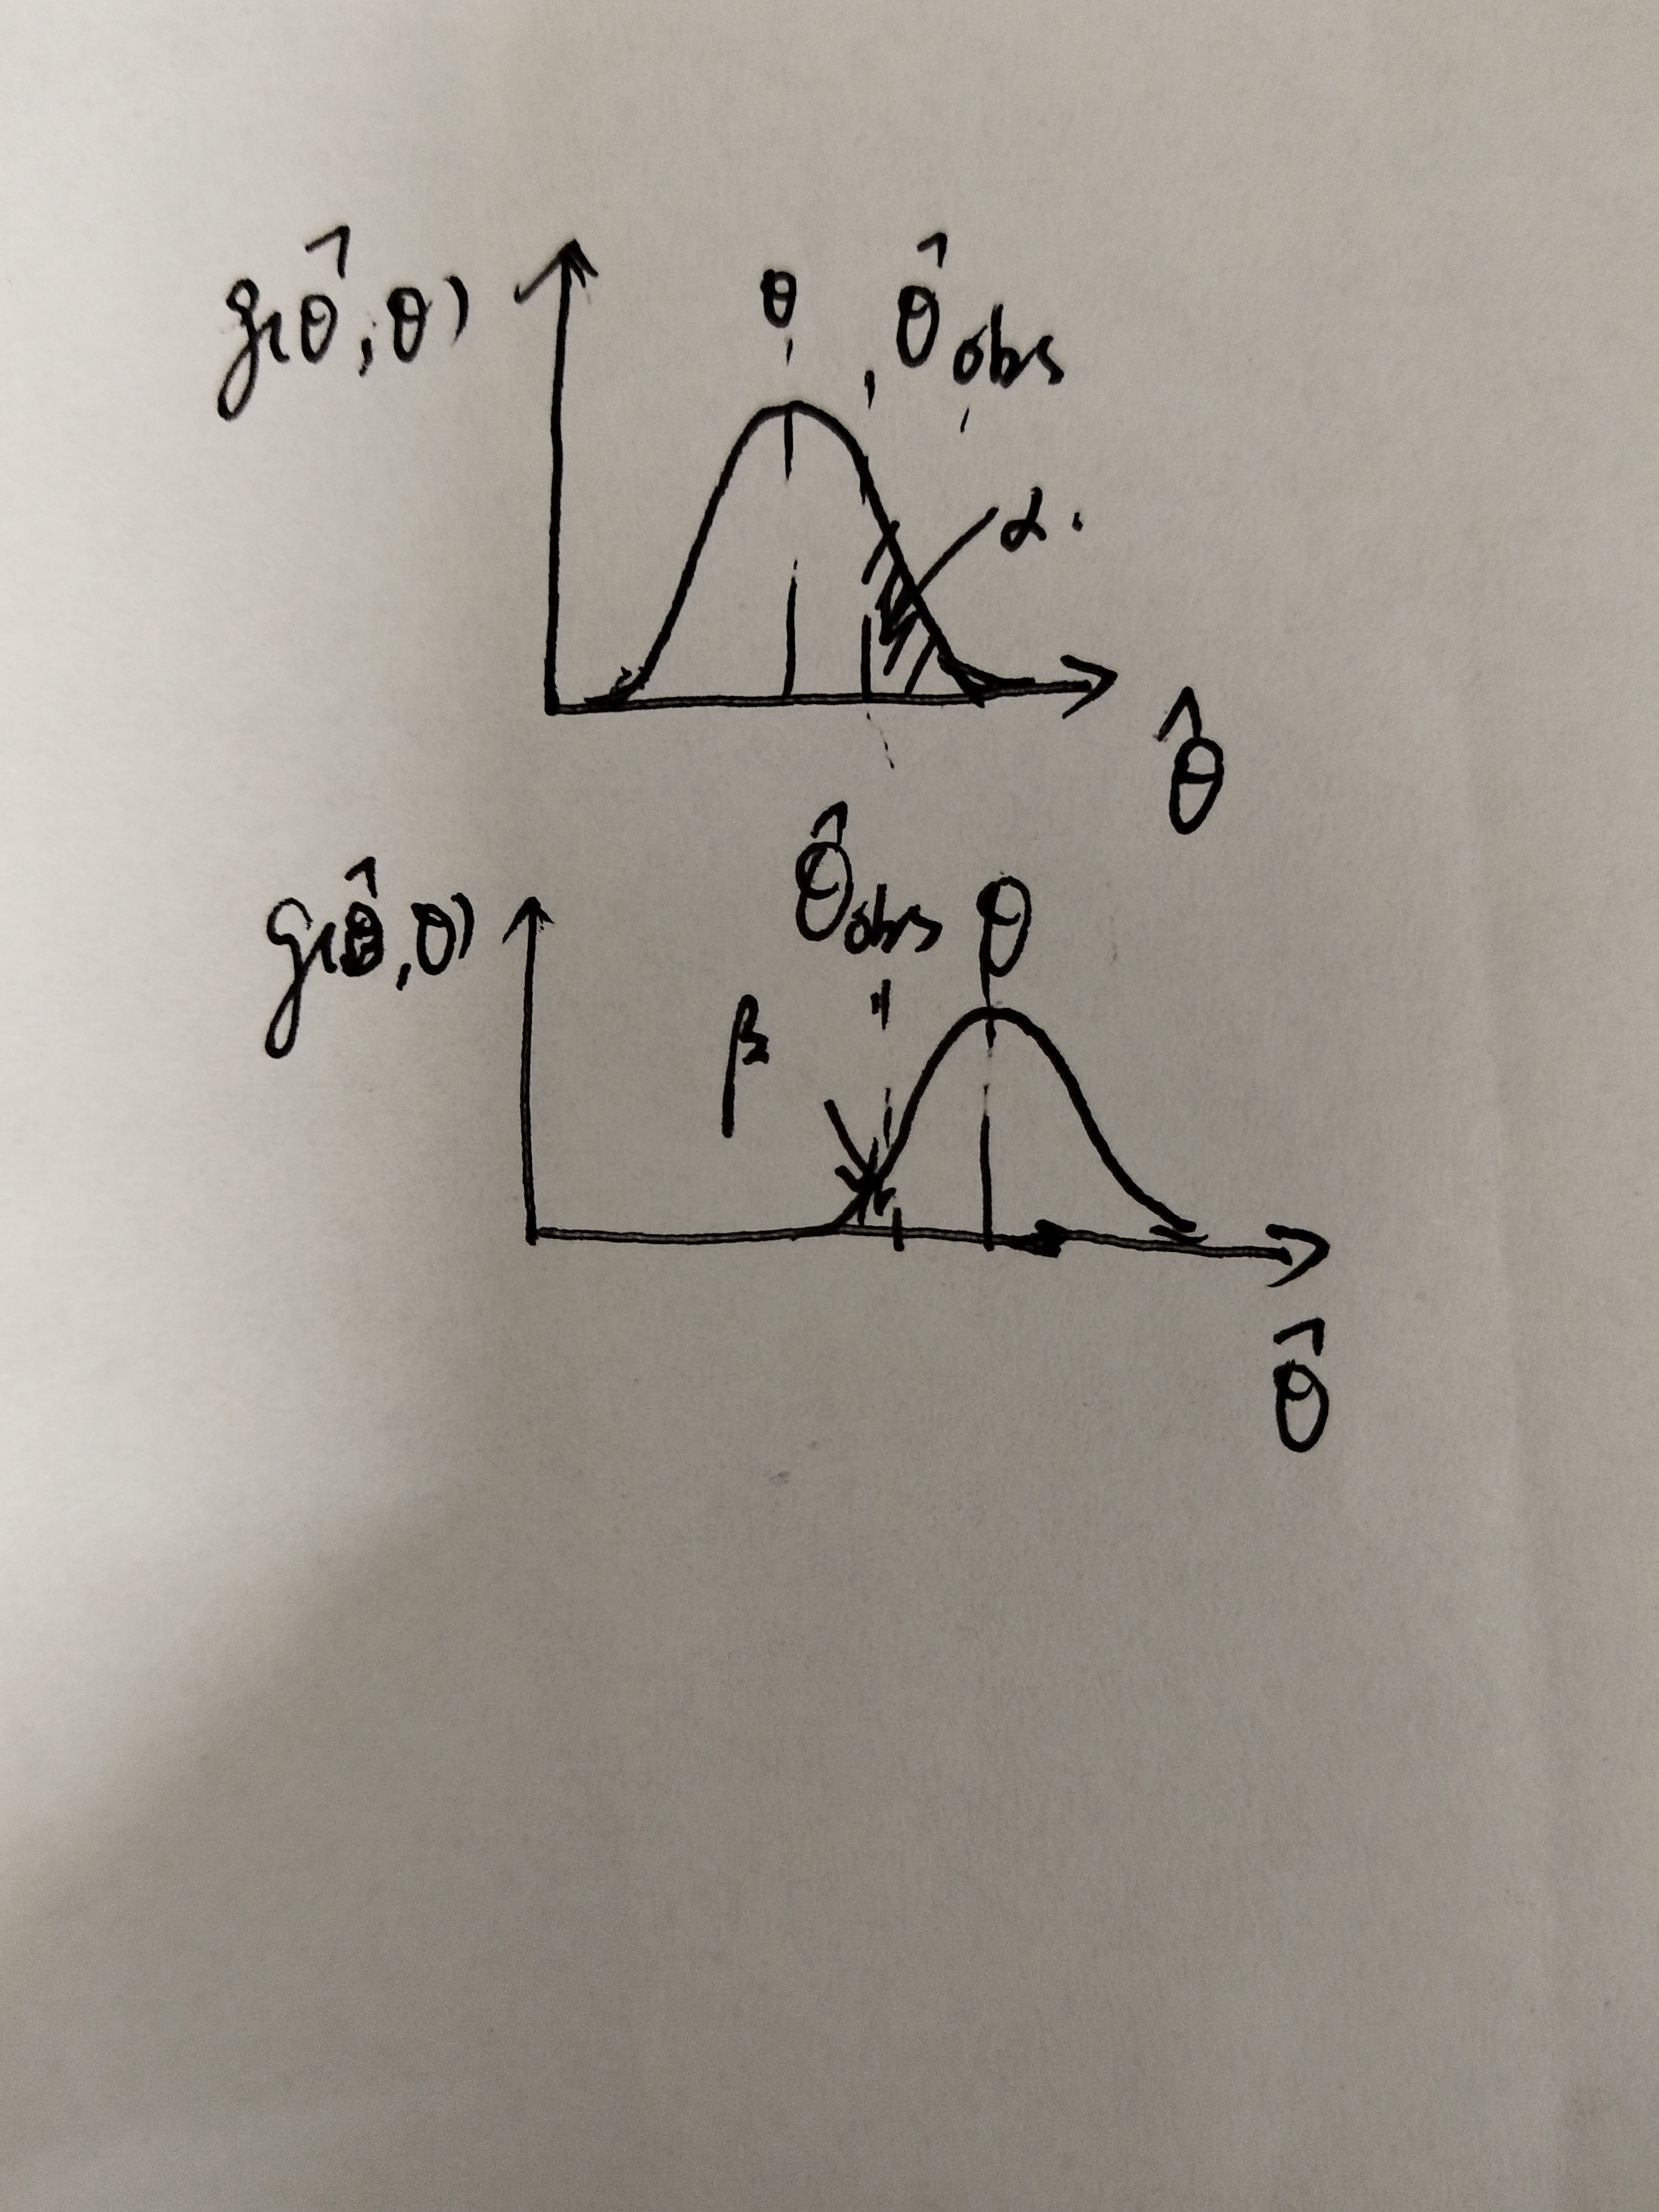 g(θ̂, θ)
θ
θ̂obs
α.
θ̂
g(θ̂, θ)
θ̂obs
θ
β
θ̂